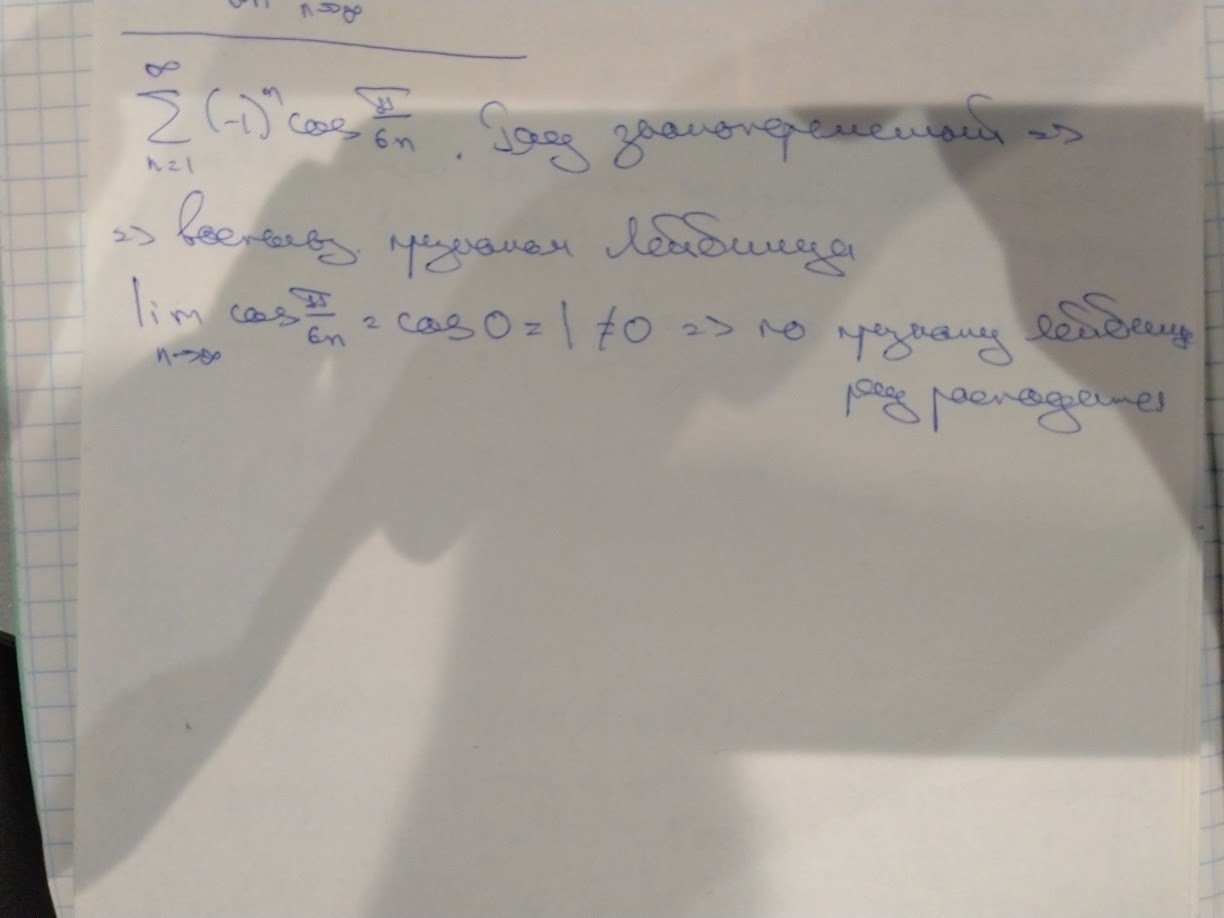 n→∞
∞
∑ (-1)ⁿ cos π/6n . Ряд знакопеременный =>
n=1
=> воспольз. признаком Лейбница
lim cos π/6n = cos 0 = 1 ≠ 0 => по признаку Лейбница
n→∞
ряд расходится